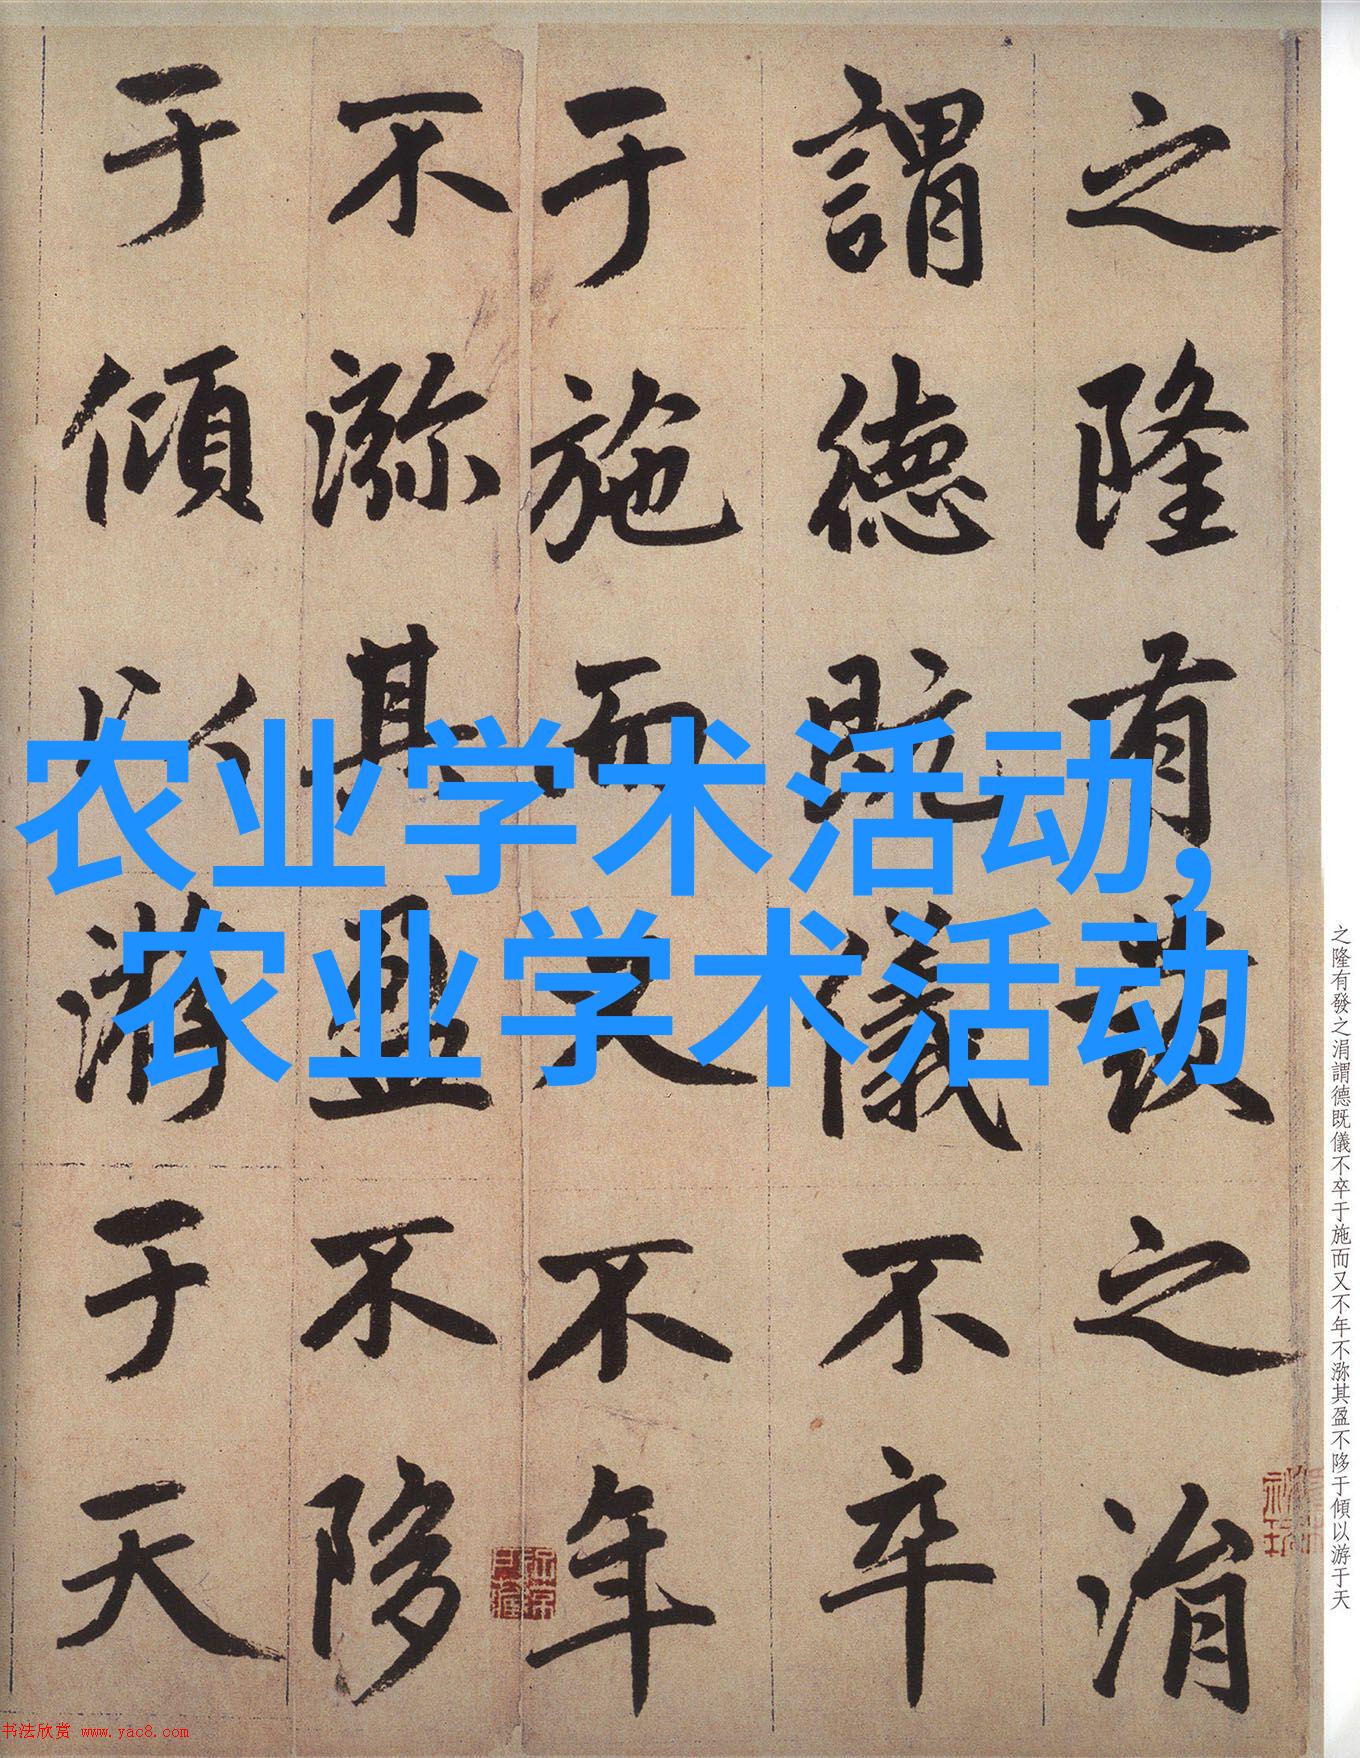 之隆有發之涓
謂德既儀不卒
于施而又不年
不㳽其盈不陊
于傾以游于天
农业学术活动,
农业学术活动
之隆有發之涓謂德既儀不卒于施而又不年不㳽其盈不陊于傾以游于天
书法欣赏 www.yac8.com